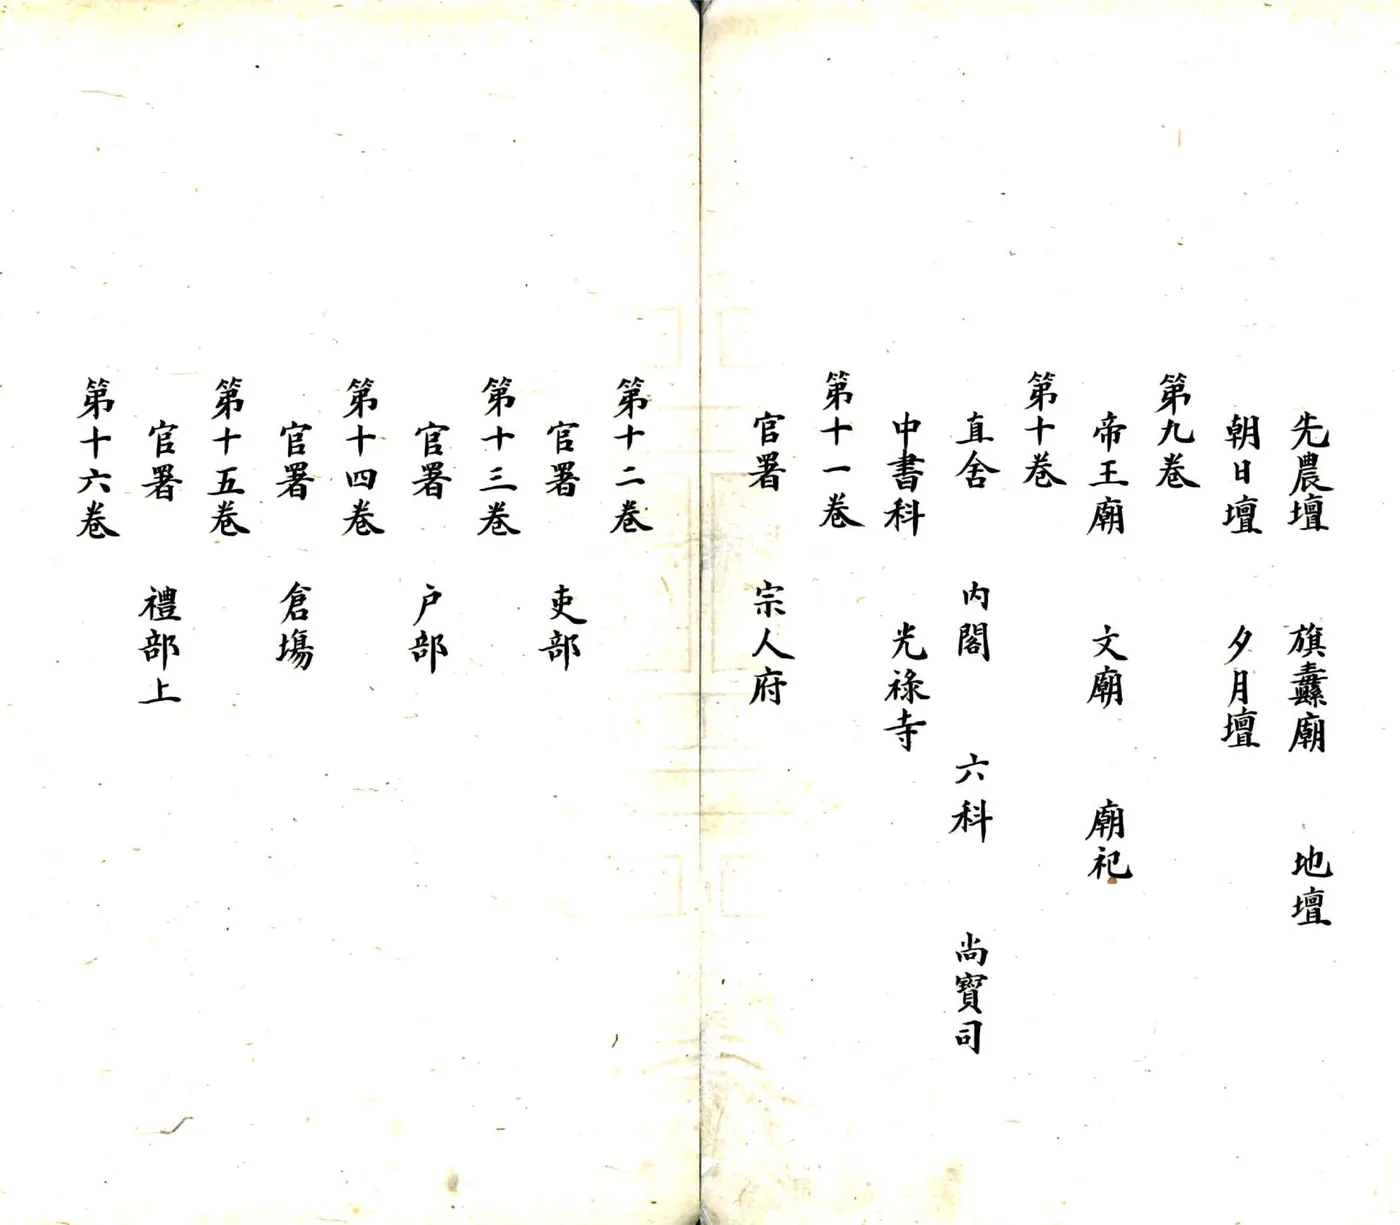 先農壇 旗纛廟 地壇
朝日壇 夕月壇
第九卷
帝王廟 文廟 廟祀
第十卷
直舍 內閣 六科 尚寶司
中書科 光祿寺
第十一卷
官署 宗人府
第十二卷
官署 吏部
第十三卷
官署 户部
第十四卷
官署 倉塲
第十五卷
官署 禮部上
第十六卷